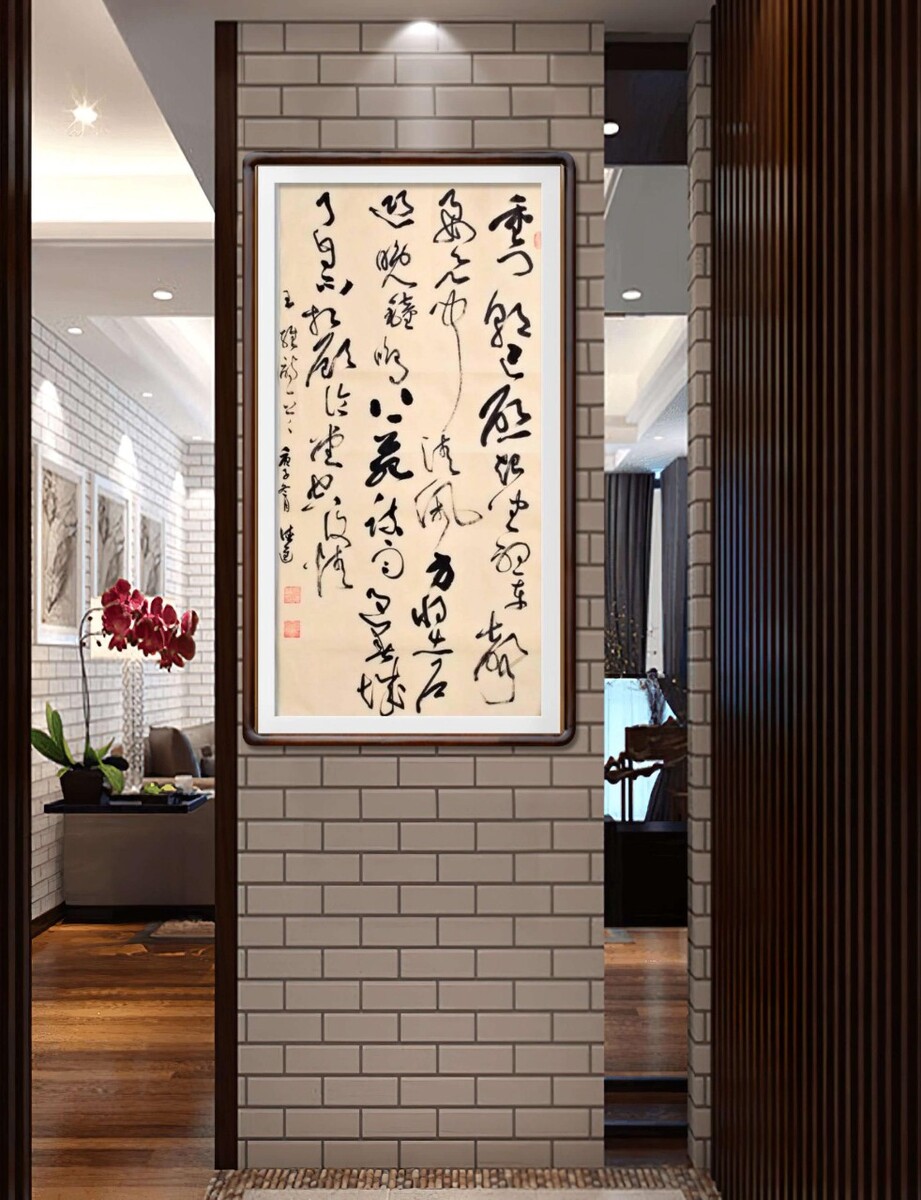 重门朝已启起坐听车聲
要欲闻清佩方将出户
迎晚鐘鸣上苑疏雨过春城
了自不相顾临堂空复情
王維詩一首庚子冬月